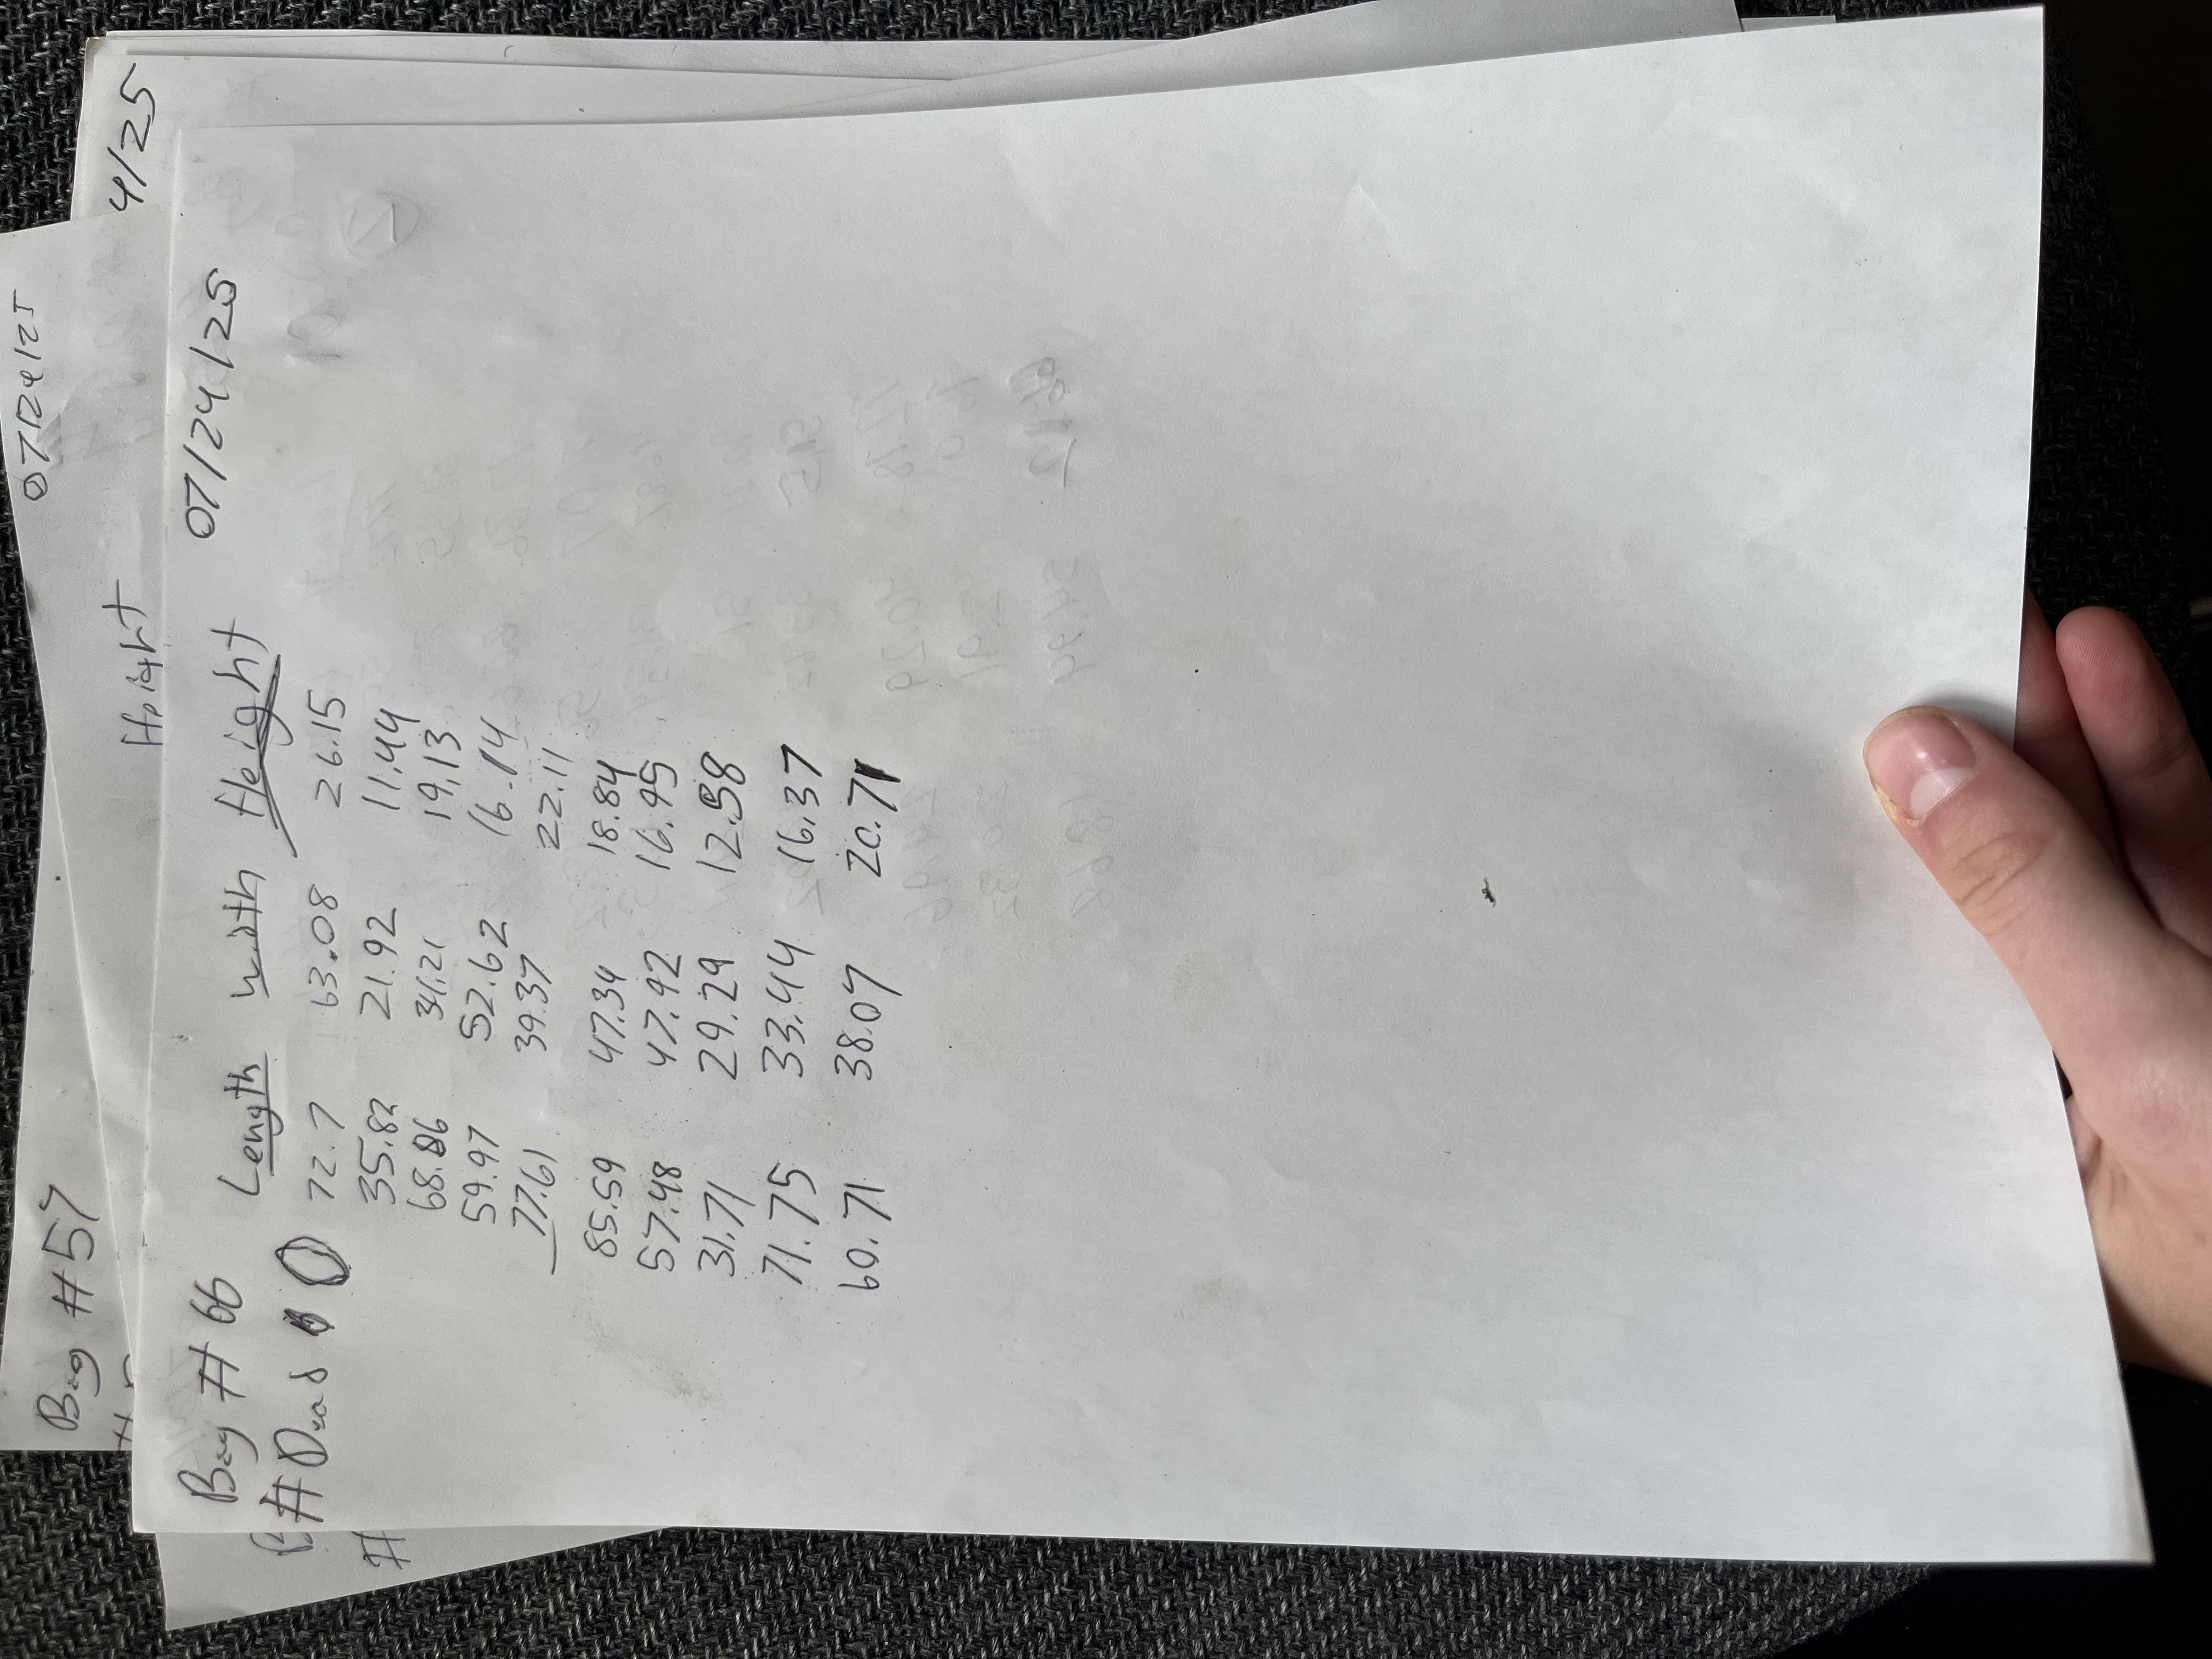 Bag #57
07/24/25
Height
4/25
Bag # 66
07/24/25
Length Width Height
#Dead 0
72.7 63.08 26.15
35.82 21.92 11.44
68.06 34.21 19.13
59.97 52.62 16.14
77.61 39.37 22.11
85.59 47.34 18.84
57.48 47.92 16.95
31.71 29.29 12.58
71.75 33.44 16.37
60.71 38.07 20.71